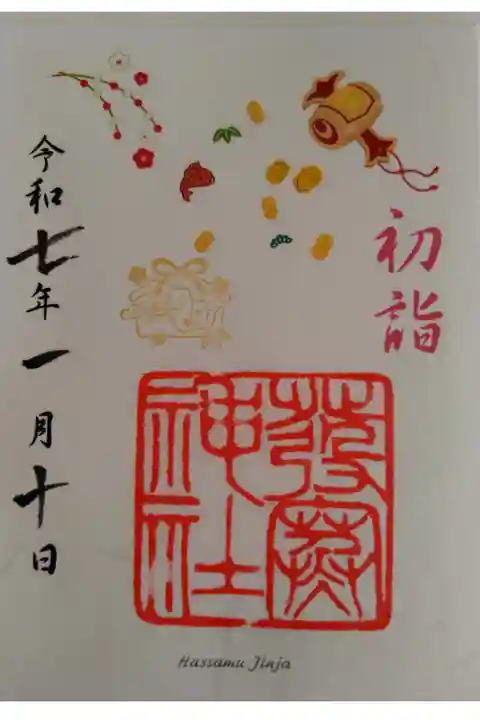 初詣
發寒
神社
令和七年一月十日
Hassamu Jinja